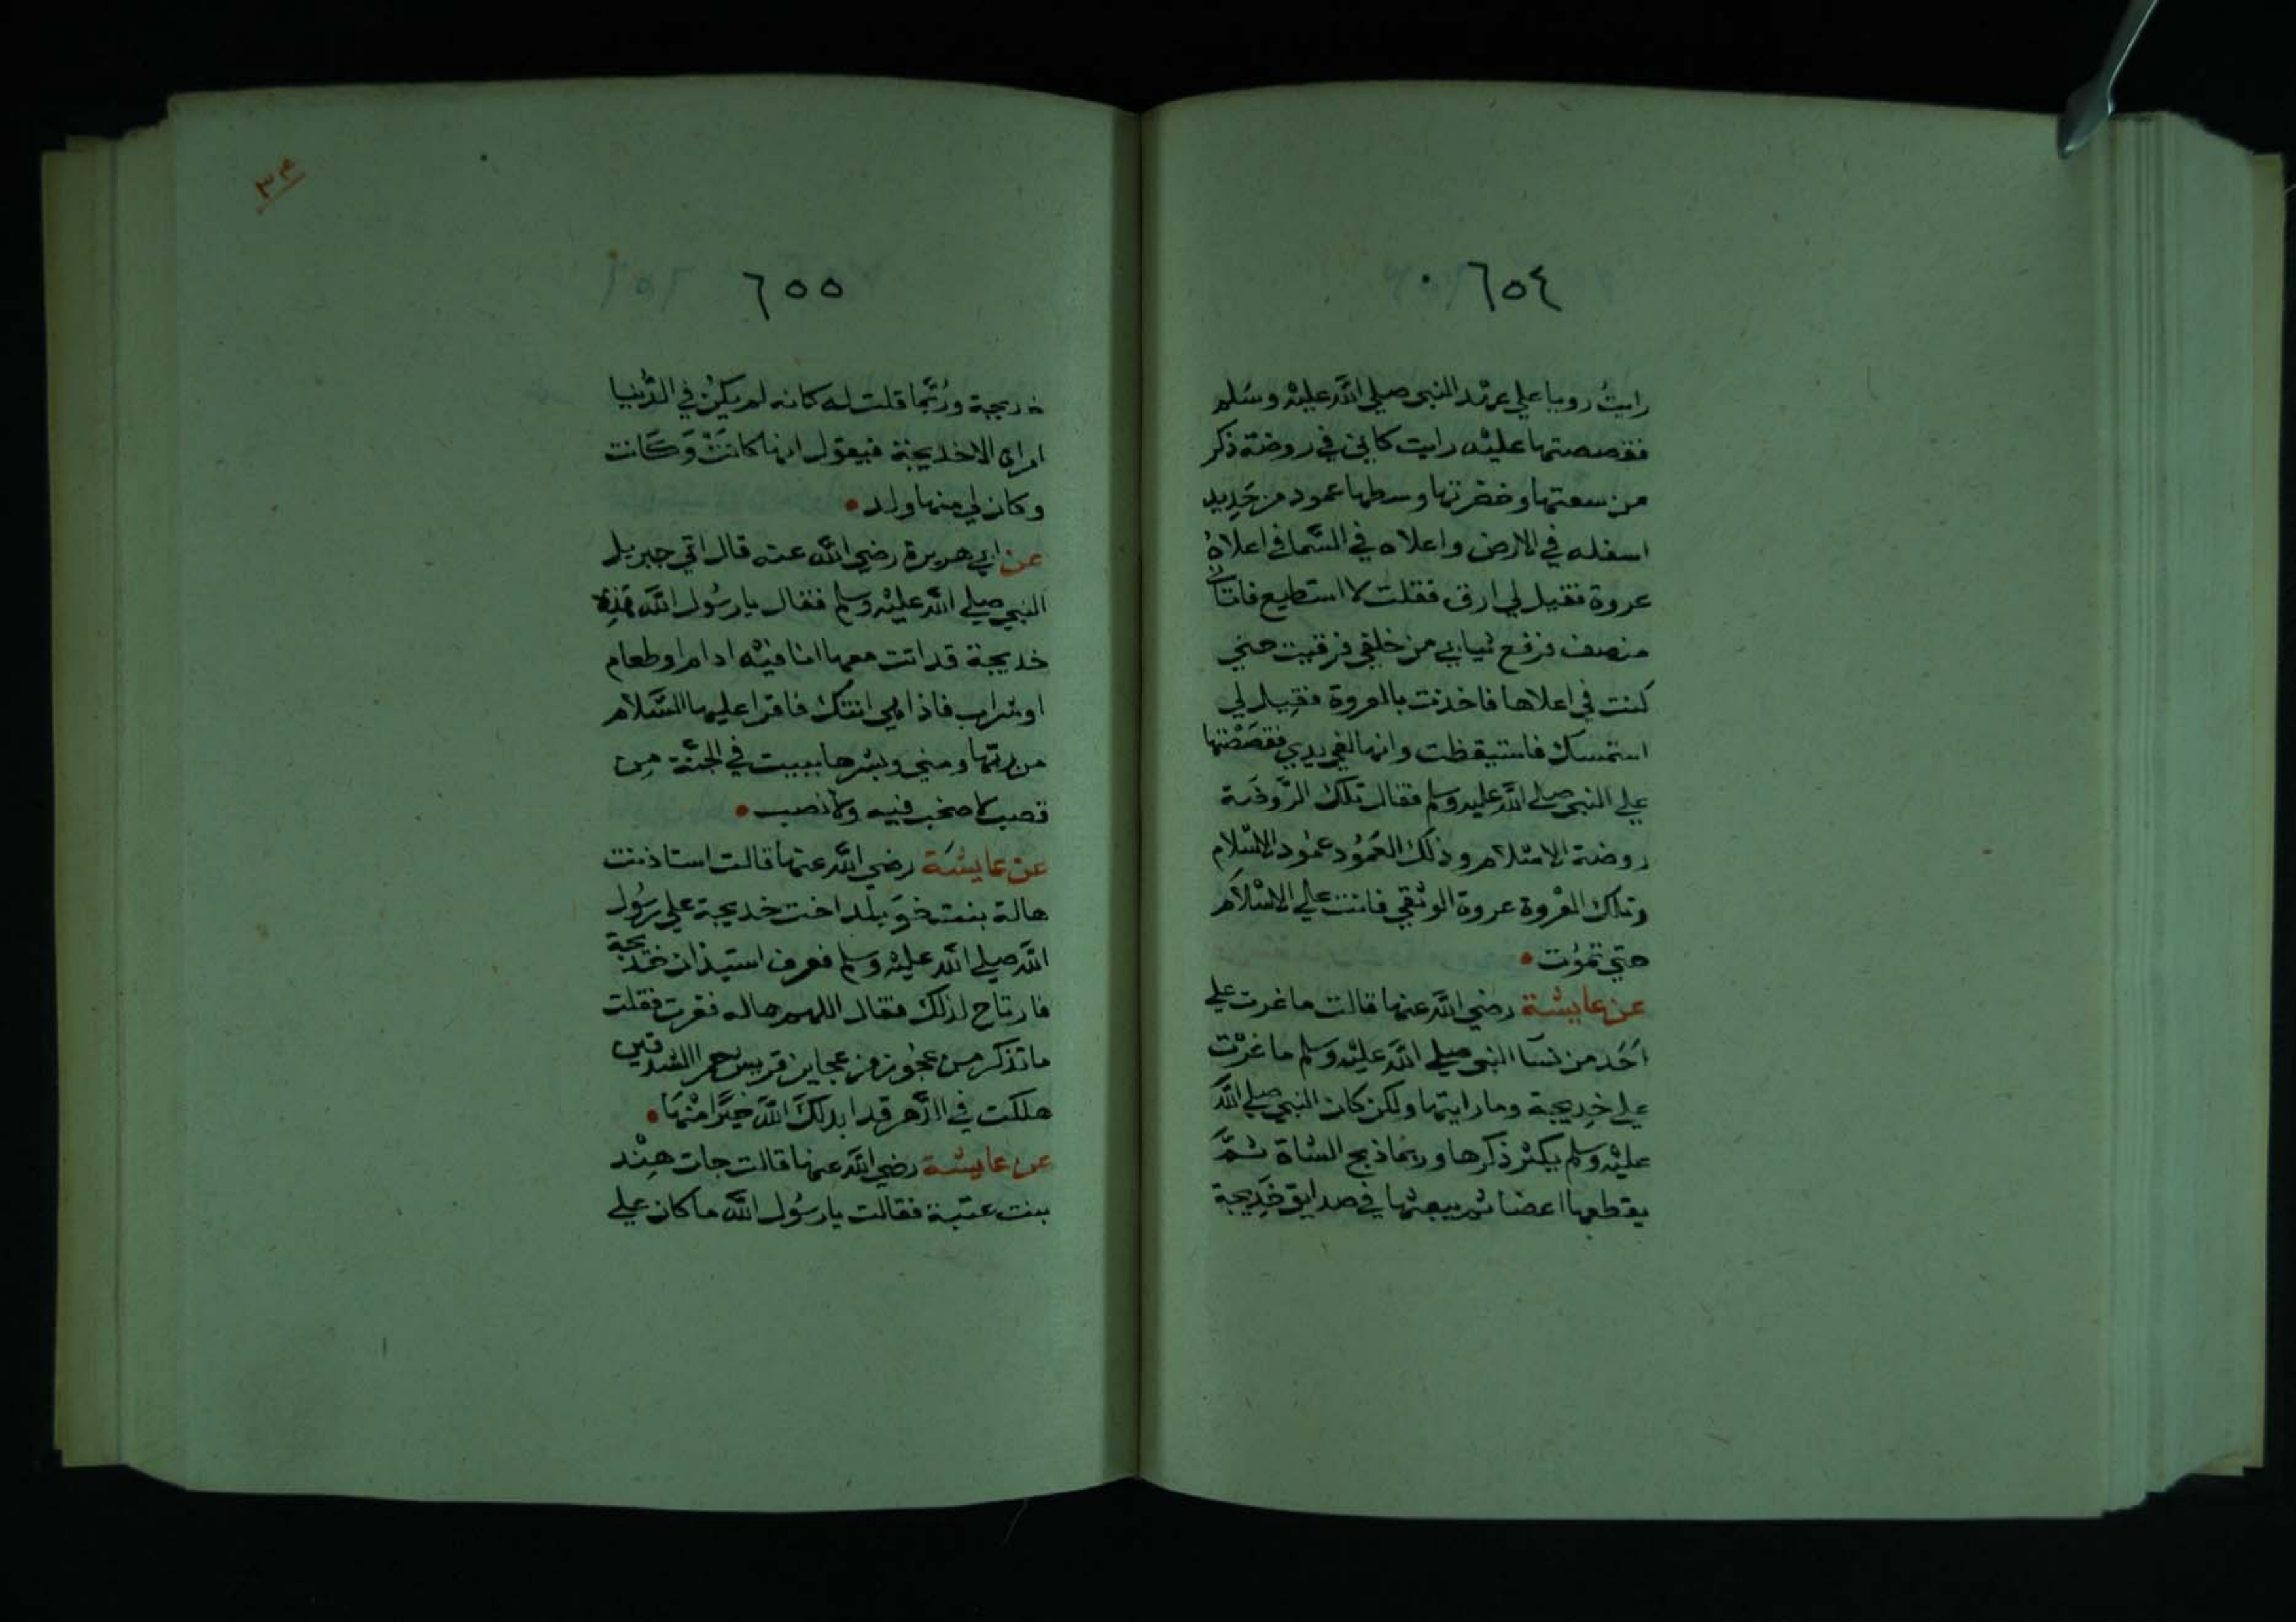 ٦٥٤
رايتُ رويا علي عهد النبي صلي الله عليه وسلم
فقصصتها عليه رايت كاني في روضة ذكر
من سعتها وخضرتها وسطها عمود من حَدِيد
اسفله في الارض واعلاه في السَّما في اعلاهُ
عروة فقيل لي ارق فقلت لا استطيع فاتاني
منصف فرفع ثيابي من خلفي فرقيت حتي
كنت في اعلاها فاخذت بالعروة فقيل لي
استمسك فاستيقظت وانها لفي يدي فقصَصْتها
علي النبي صلي الله عليه وسلم فقال تلك الرَّوضة
روضة الاسْلام وذلك العَمُود عمُود الاسْلام
وتلك العُروة عروة الوثقي فانت علي الاسْلام
حتي تموُت
عن عايشة رضي الله عنها قالت ما غرت علي
اَحَد من نسَا النبي صلي الله عليه وسلم ما غرْت
علي خدِيجة وما رايتها ولكن كان النبي صلي الله
عليْه وسلم يكثر ذكرها وربما ذبح الشاة ثمَّ
يقطعها اعضا ثم يبعثها في صدايق خَدِيجة
٣٤
٦٥٥
خديجة ورُبَّما قلت له كانه لم يكنْ في الدُّنيا
امراة الا خديجة فيقول انها كانَتْ وَكَانت
وكان لي منها ولد
عن ابي هريرة رضي الله عنه قال اتي جبريل
النبي صلي الله عليْه وسلم فقال يا رسُول الله هَذِه
خديجة قد اتت معها انا فيْه ادام او طعام
او شراب فاذا هي اتتك فاقرا عليها السَّلام
من ربّها ومني وبشرها ببيت في الجنَّة مِن
قصب لا صخب فيه ولا نصب
عن عايشَة رضي الله عنها قالت استاذنت
هالة بنت خوَيلد اخت خديجة علي رسُول
الله صلي الله عليْه وسلم فعرف استيذان خديجة
فارتاح لذلك فقال اللهم هاله فغرت فقلت
ما تذكر من عجُوز من عجايز قريش حمر الشدقين
هلكت في الدَّهر قد ابدلكَ الله خيرًا منْهَا
عن عايشة رضي الله عنها قالت جات هِنْد
بنت عتبة فقالت يا رسُول الله ما كان علي